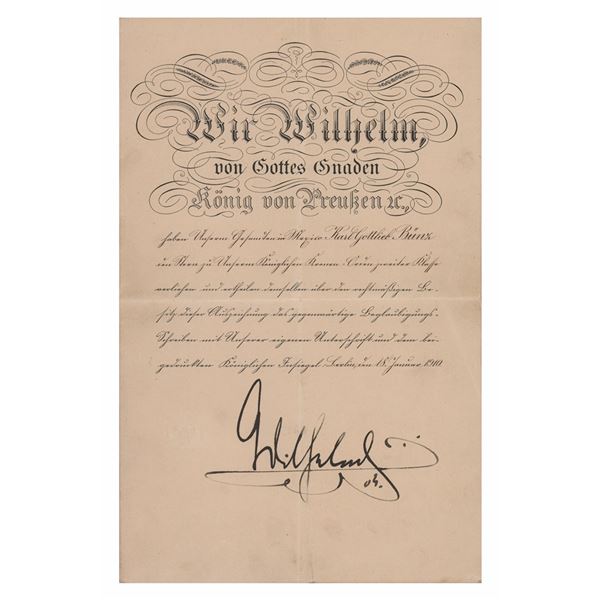 Wir Wilhelm,
von Gottes Gnaden
König von Preußen ꝛc.
haben Unserm Gesandten in Mexico Karl Gottlieb Bünz
den Stern zu Unserm Königlichen Kronen-Orden zweiter Klasse
verliehen und ertheilen demselben über den rechtmäßigen Be-
sitz dieser Auszeichnung das gegenwärtige Beglaubigungs-
Schreiben mit Unserer eigenen Unterschrift und dem bei-
gedruckten Königlichen Insiegel. Berlin, den 18. Januar 1910.
Wilhelm